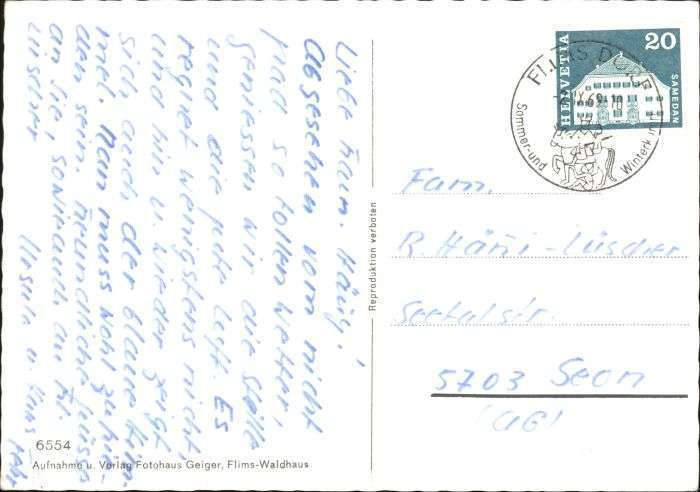 Liebe Fam. Häni!
Abgesehen vom nicht
grad so tollen Wetter,
geniessen wir die Stille
und die gute Luft. Es
regnet wenigstens nicht,
und hin u. wieder zeigt
sich auch der blaue Him-
mel. Man muss wohl zufrie-
den sein. Freundliche Grüsse
an Sie, sowie auch an Frl.
Ursula u. Hans
6554
Aufnahme u. Verlag Fotohaus Geiger, Flims-Waldhaus
Reproduktion verboten
HELVETIA
20
SAMEDAN
FLIMS DORF
69.10
Sommer- und
Winterk
Fam.
R. Häni-Lüscher
Seetalstr.
5703 Seon
(AG)